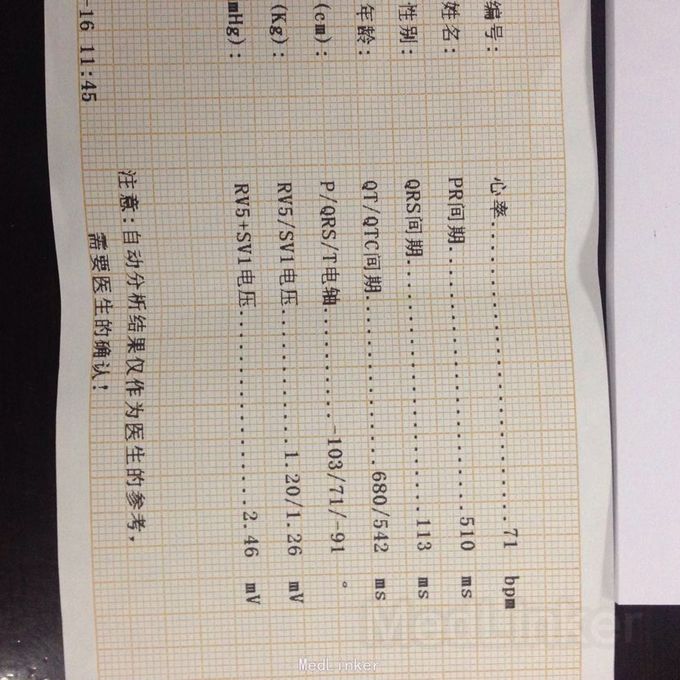 编号:
姓名:
性别:
年龄:
(cm):
(Kg):
mHg):
-16 11:45
心率....................71 bpm
PR间期....................510 ms
QRS间期....................113 ms
QT/QTC间期................680/542 ms
P/QRS/T电轴...........-103/71/-91 °
RV5/SV1电压............1.20/1.26 mV
RV5+SV1电压................2.46 mV
注意:自动分析结果仅作为医生的参考,
需要医生的确认!
MedLinker
MedLinker